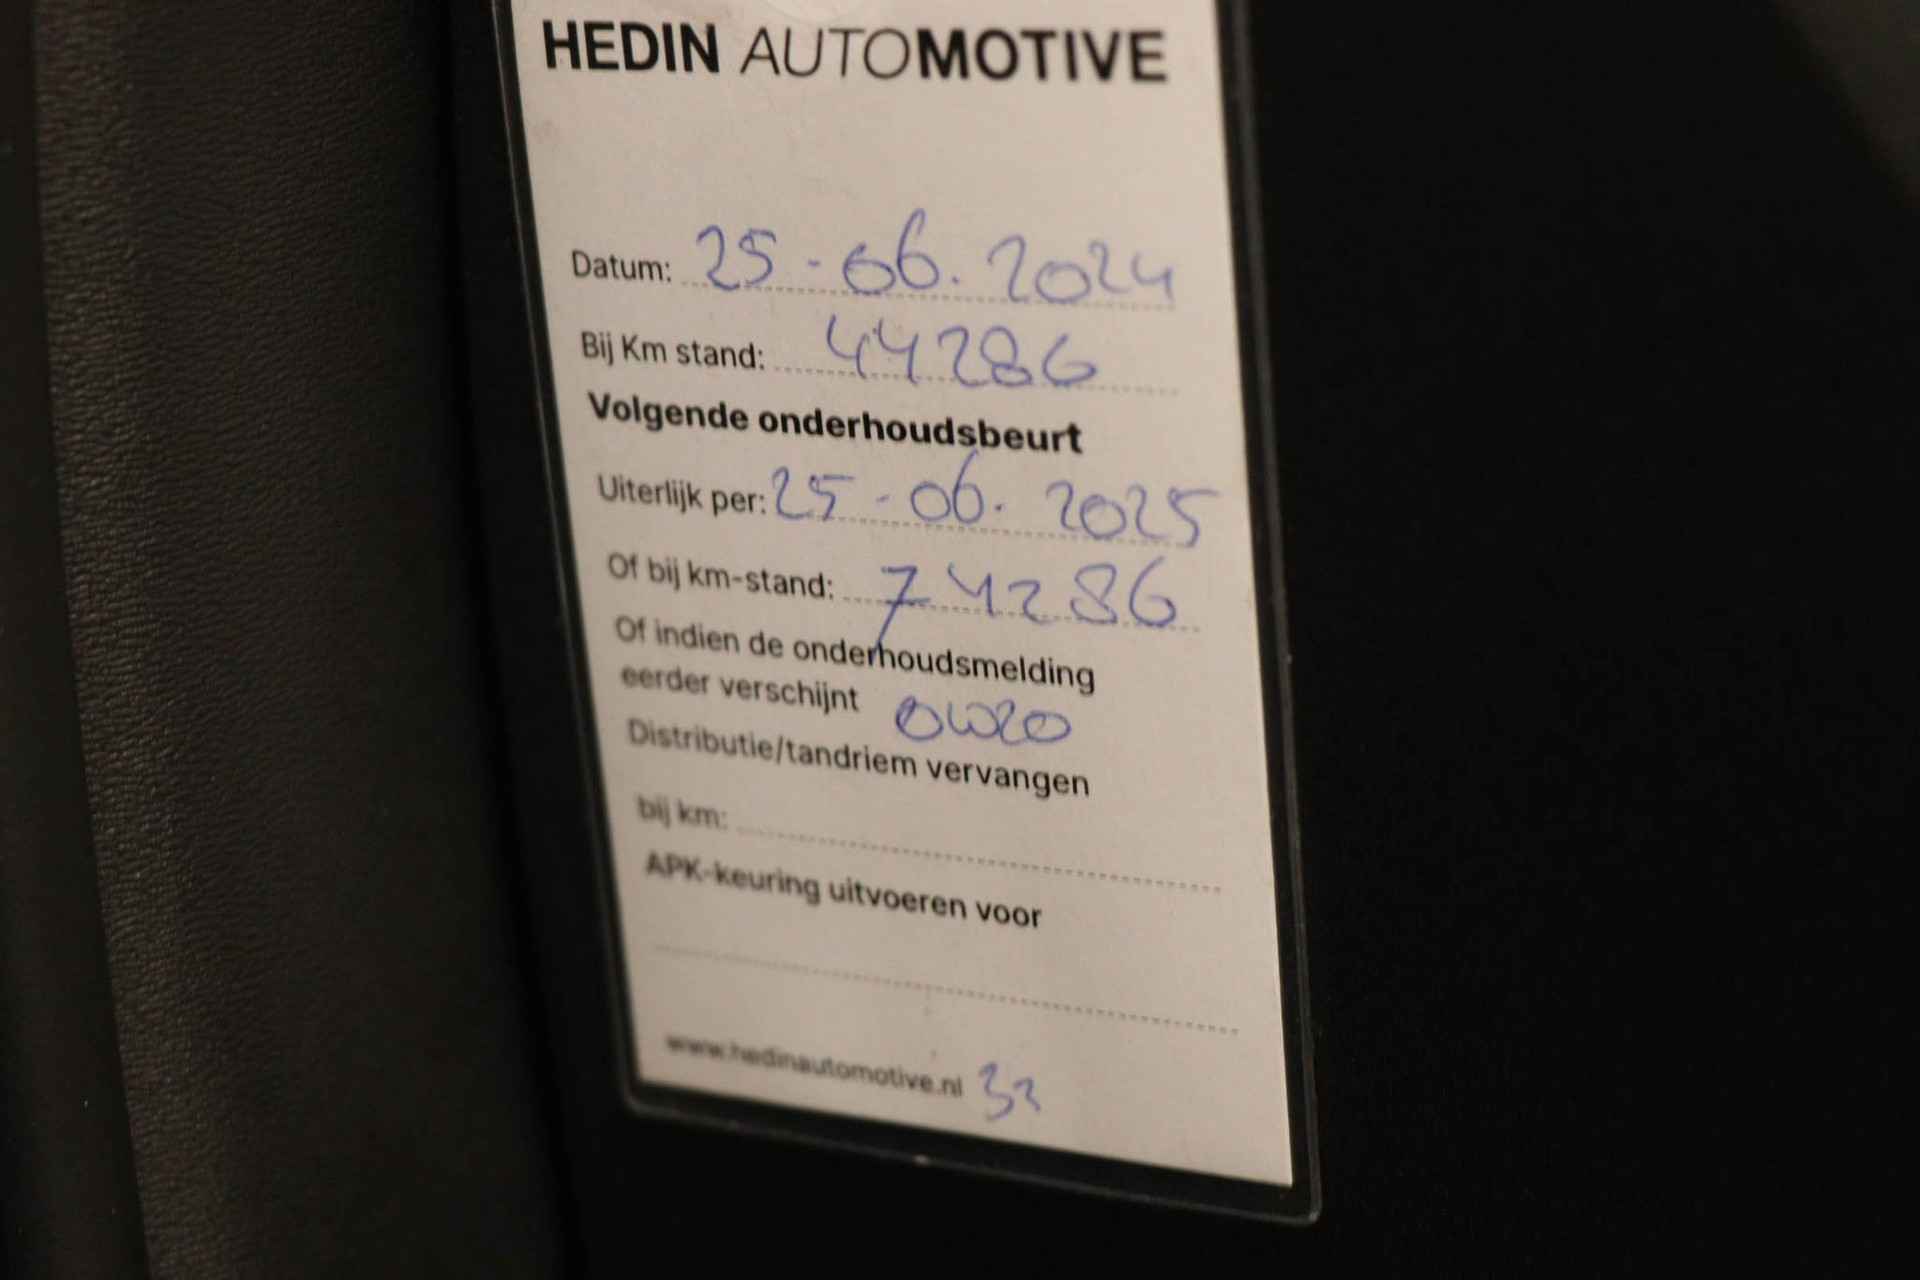 HEDIN AUTOMOTIVE
Datum: 25-06.2024
Bij Km stand: 44286
Volgende onderhoudsbeurt
Uiterlijk per: 25-06.2025
Of bij km-stand: 74286
Of indien de onderhoudsmelding
eerder verschijnt 0W20
Distributie/tandriem vervangen
bij km:
APK-keuring uitvoeren voor
www.hedinautomotive.nl